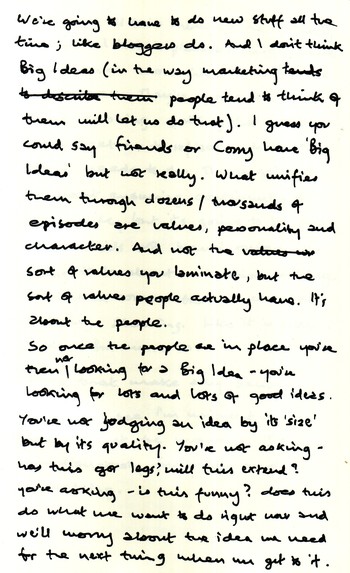 We're going to have to do new stuff all the
time; like bloggers do. And I don't think
Big Ideas (in the way marketing tends
to describe them people tend to think of
them will let us do that). I guess you
could say Friends or Corry have 'Big
Ideas' but not really. What unifies
them through dozens/thousands of
episodes are values, personality and
character. And not the values we
sort of values you laminate, but the
sort of values people actually have. It's
about the people.
So once the people are in place you're
then not looking for a Big Idea - you're
looking for lots and lots of good ideas.
You're not judging an idea by its 'size'
but by its quality. You're not asking -
has this got legs? will this extend?
you're asking - is this funny? does this
do what we want to do right now and
we'll worry about the idea we need
for the next thing when we get to it.